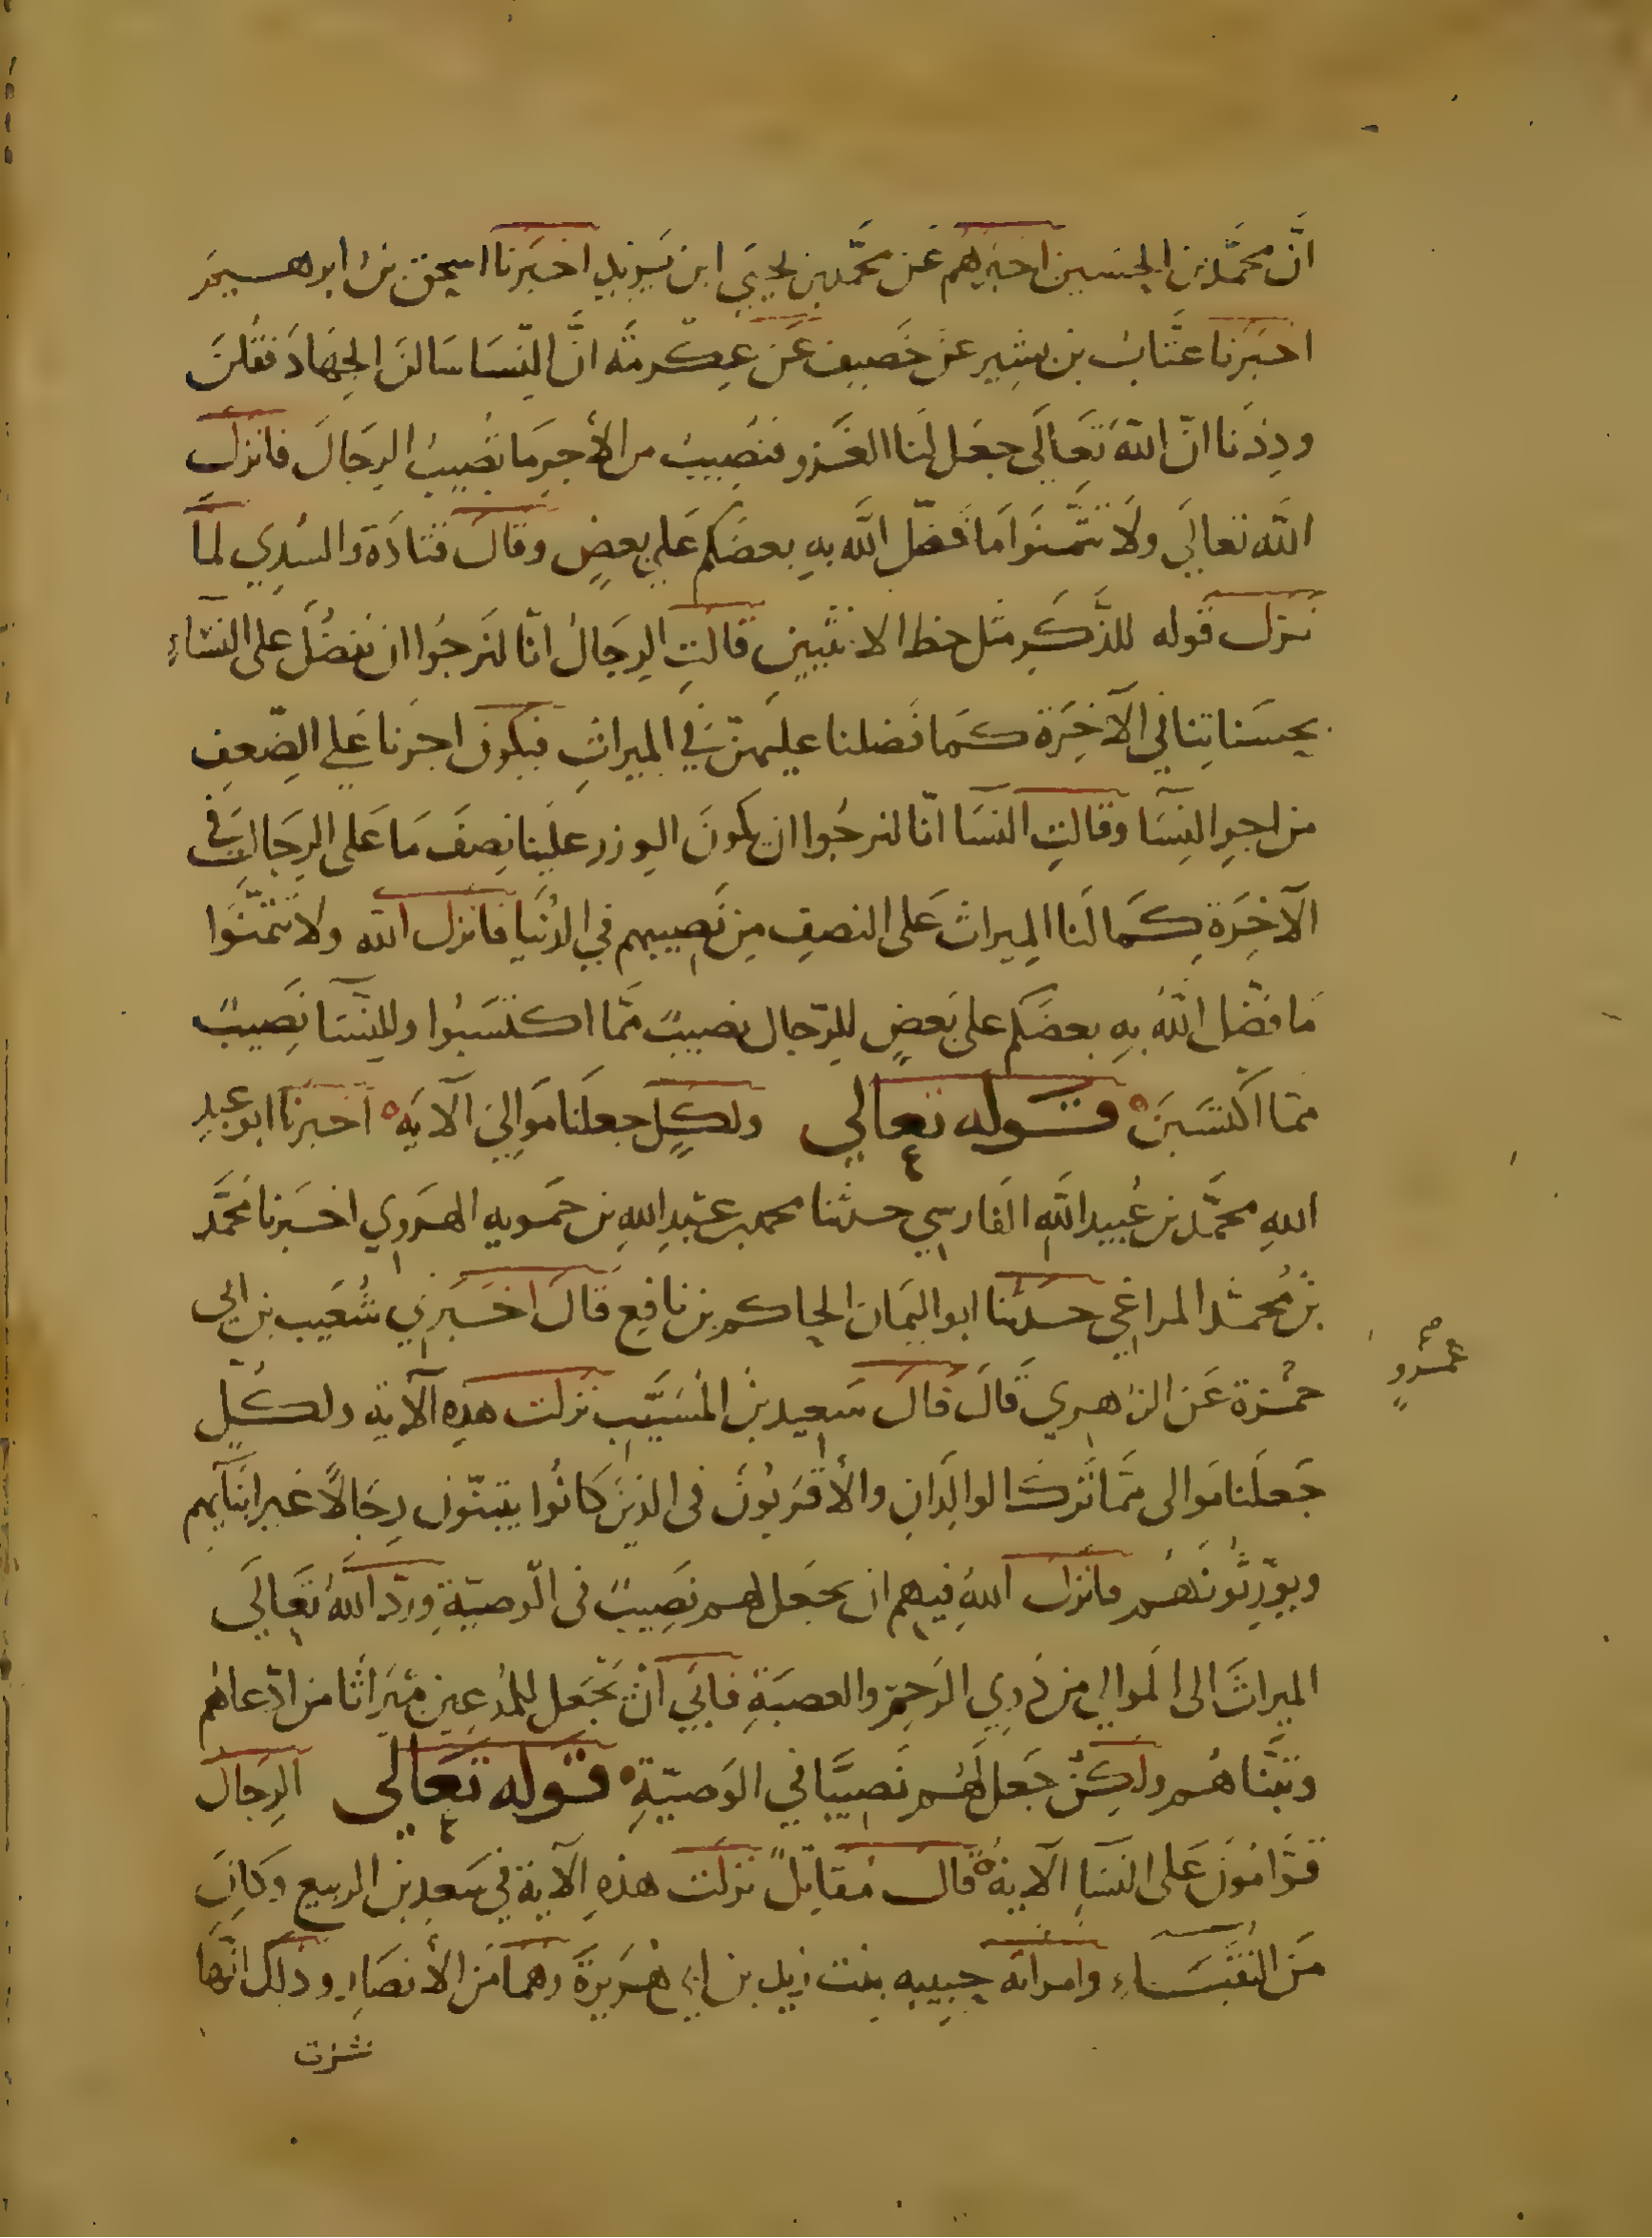 انّ محمّد بن الحسين اخبرهم عن محمّد بن يحيى ابن يزيد اخبرنا اسحق بن ابرهيم
اخبرنا عتّاب بن بشير عن خصيف عن عكرمة انّ النّسا سالن الجهاد فقلن
وددنا انّ اللّه تعالى جعل لنا الغزو فنصيب من الأجر ما تصيب الرجال فانزل
اللّه تعالى ولا تتمنّوا ما فضّل اللّه به بعضكم على بعض وقال قتادة والسدي لمّا
نزل قوله للذّكر مثل حظ الانثيين قالت الرجال انّا لنرجوا ان نفضل على النساء
بحسناتنا في الآخرة كما فضلنا عليهنّ في الميراث فيكون اجرنا على الضّعف
من اجر النسا وقالت النسا انّا لنرجوا ان يكون الوزر علينا نصف ما على الرجال في
الآخرة كما لنا الميراث على النصف من نصيبهم في الدنيا فانزل اللّه ولا تتمنّوا
ما فضّل اللّه به بعضكم على بعض للرّجال نصيب ممّا اكتسبوا وللنّسا نصيب
ممّا اكتسبن قوله تعالي ولكل جعلنا موالي الآيه اخبرنا ابو عبد
الله محمّد بن عبيد اللّه الفارسي حدثنا محمد بن عبد الله بن حمويه الهروي اخبرنا محمّد
بن محمد المراغي حدثنا ابو اليمان الحاكم بن نافع قال اخبرني شعيب بن ابي
عمرو
حمزة عن الزاهري قال قال سعيد بن المسيّب نزلت هذه الآية ولكل
جعلنا موالى ممّا ترك الوالدان والأقربون فى الذين كانوا يتبنّون رجالاً غير ابنآيهم
ويورّثونهم فانزل اللهِ فيهم ان يجعل لهم نصيب فى الوصيّة وردّ اللّه تعالى
الميراث الى الموالي من ذوي الرحم والعصبة فابي انْ يجعل للمدعين ميراثا من ادّعاهم
وتبنّاهم ولكن جعل لهم نصيبًا في الوصيّة قوله تعالى الرجال
قوّامون على النسا الآية قال مقاتل نزلت هذه الآية في سعد بن الربيع وكان
من النقباء وامراته حبيبه بنت زيد بن ابي هريرة وهما من الأنصار وذلك انّها
نشزت